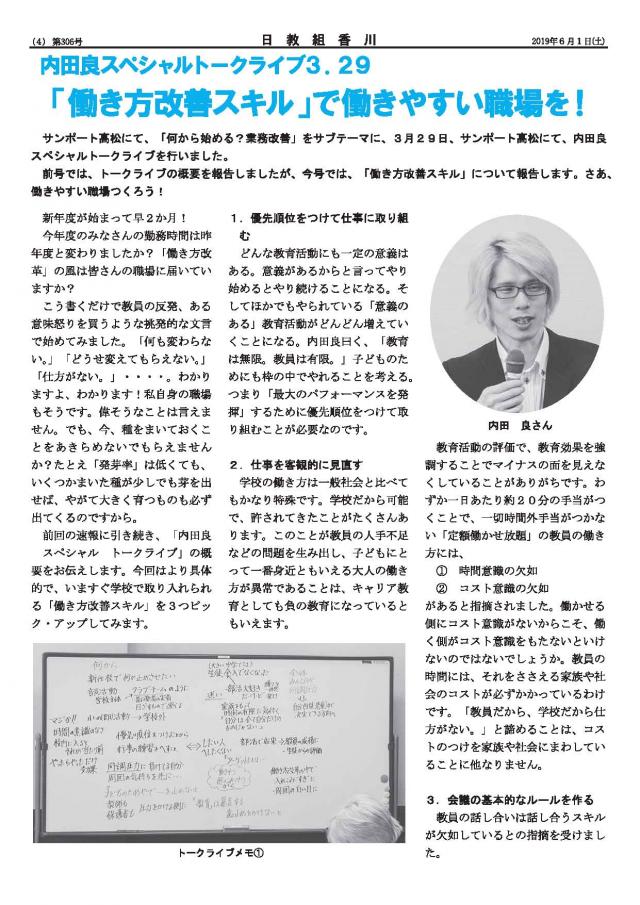 (4) 第306号
日 教 組 香 川
2019年6月1日(土)
内田良スペシャルトークライブ3.29
「働き方改善スキル」で働きやすい職場を！
サンポート高松にて、「何から始める？業務改善」をサブテーマに、3月29日、サンポート高松にて、内田良
スペシャルトークライブを行いました。
前号では、トークライブの概要を報告しましたが、今号では、「働き方改善スキル」について報告します。さあ、
働きやすい職場つくろう！
新年度が始まって早2か月！
今年度のみなさんの勤務時間は昨
年度と変わりましたか？「働き方改
革」の風は皆さんの職場に届いてい
ますか？
こう書くだけで教員の反発、ある
意味怒りを買うような挑発的な文言
で始めてみました。「何も変わらな
い。」「どうせ変えてもらえない。」
「仕方がない。」・・・・。わかり
ますよ、わかります！私自身の職場
もそうです。偉そうなことは言えま
せん。でも、今、種をまいておくこ
とをあきらめないでもらえません
か？たとえ「発芽率」は低くても、
いくつかまいた種が少しでも芽を出
せば、やがて大きく育つものも必ず
出てくるのですから。
前回の速報に引き続き、「内田良
スペシャル　トークライブ」の概
要をお伝えします。今回はより具体
的で、いますぐ学校で取り入れられ
る「働き方改善スキル」を3つピッ
ク・アップしてみます。
1．優先順位をつけて仕事に取り組
む
どんな教育活動にも一定の意義は
ある。意義があるからと言ってやり
始めるとやり続けることになる。そ
してほかでもやられている「意義の
ある」教育活動がどんどん増えてい
くことになる。内田良曰く、「教育
は無限。教員は有限。」子どものた
めにも枠の中でやれることを考える。
つまり「最大のパフォーマンスを発
揮」するために優先順位をつけて取
り組むことが必要なのです。
2．仕事を客観的に見直す
学校の働き方は一般社会と比べて
もかなり特殊です。学校だから可能
で、許されてきたことがたくさんあ
ります。このことが教員の人手不足
などの問題を生み出し、子どもにと
って一番身近ともいえる大人の働き
方が異常であることは、キャリア教
育としても負の教育になっていると
もいえます。
内田　良さん
教育活動の評価で、教育効果を強
調することでマイナスの面を見えな
くしていることがありがちです。わ
ずか一日あたり約20分の手当がつ
くことで、一切時間外手当がつかな
い「定額働かせ放題」の教員の働き
方には、
①　時間意識の欠如
②　コスト意識の欠如
があると指摘されました。働かせる
側にコスト意識がないからこそ、働
く側がコスト意識をもたないといけ
ないのではないでしょうか。教員の
時間には、それをささえる家族や社
会のコストが必ずかかっているわけ
です。「教員だから、学校だから仕
方がない。」と諦めることは、コス
トのつけを家族や社会にまわしてい
ることに他なりません。
3．会議の基本的なルールを作る
教員の話し合いは話し合うスキル
が欠如しているとの指摘を受けまし
た。
何から
トークライブメモ①